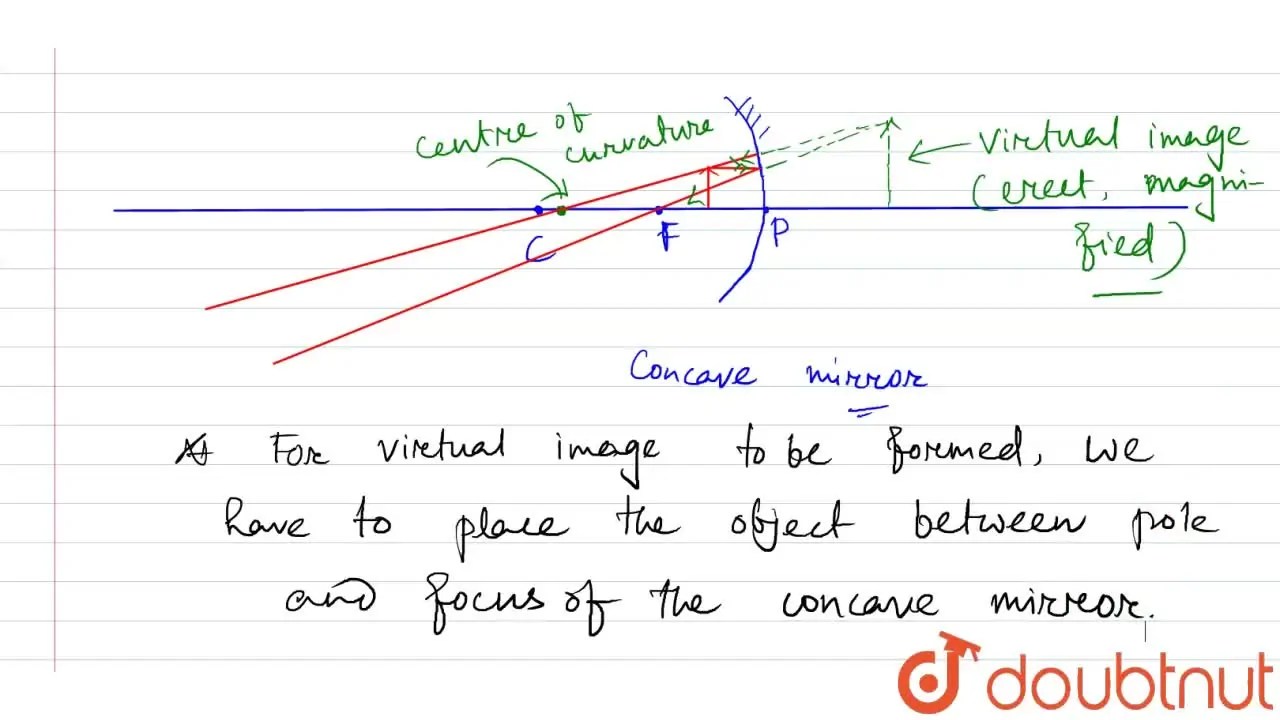 centre of
curvature
virtual image
(erect, magni-
fied)
C
F
P
Concave mirror
For virtual image to be formed, we
have to place the object between pole
and focus of the concave mirror.
doubtnut